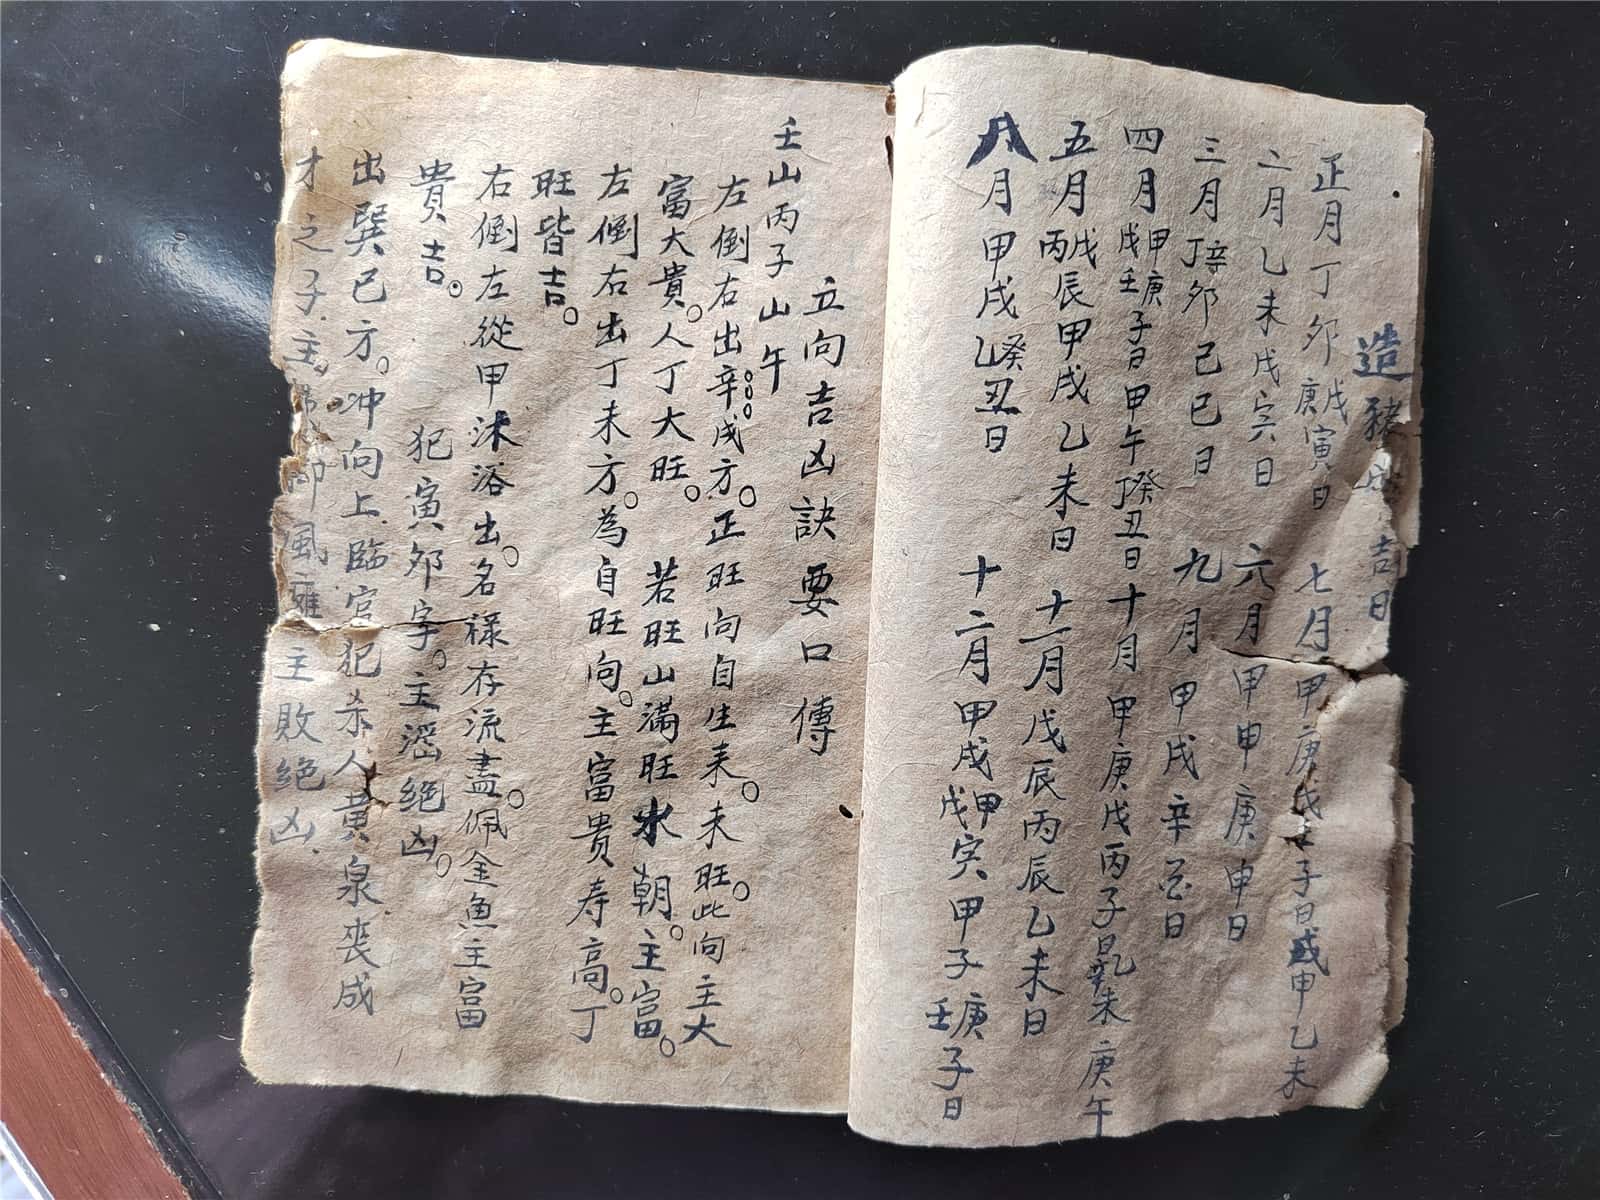 造豬出吉日
正月丁卯戊庚寅日
七月甲庚戊子日或甲申乙未
二月乙未戊寅日
六月甲申庚申日
三月辛丁卯己巳日
九月甲戌辛日
四月甲戊庚壬子日甲午癸丁丑日
十月甲庚戊丙子日乙辛未庚午
五月戊丙辰甲戌乙未日
十一月戊辰丙辰乙未日
八月甲戌癸乙丑日
十二月甲戌甲戊寅甲子庚壬子日
立向吉凶訣要口傳
壬山丙子山午
左倒右出辛戌方。正旺向自生來。未旺。此向主大
富大貴。人丁大旺。若旺山滿旺水朝。主富。
左倒右出丁未方。為自旺向。主富貴寿高。丁
旺皆吉。
右倒左從甲沐浴出。名禄存流盡。佩金魚主富
貴吉。
犯寅卯字。主滛絕凶。
出巽巳方。冲向上臨官犯杀人黃泉丧成
才之子主風主敗絕凶.